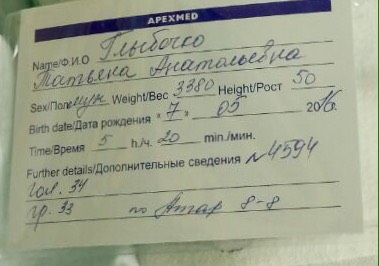 APEXMED
Name/Ф.И.О Глыбочко
Татьяна Анатольевна
Sex/Пол муж Weight/Вес 3380 Height/Рост 50
Birth date/Дата рождения "7" 05 2016.
Time/Время 5 h/ч. 20 min./мин.
Further details/Дополнительные сведения №4594
гол. 34
гр. 33 по Апгар 8-8